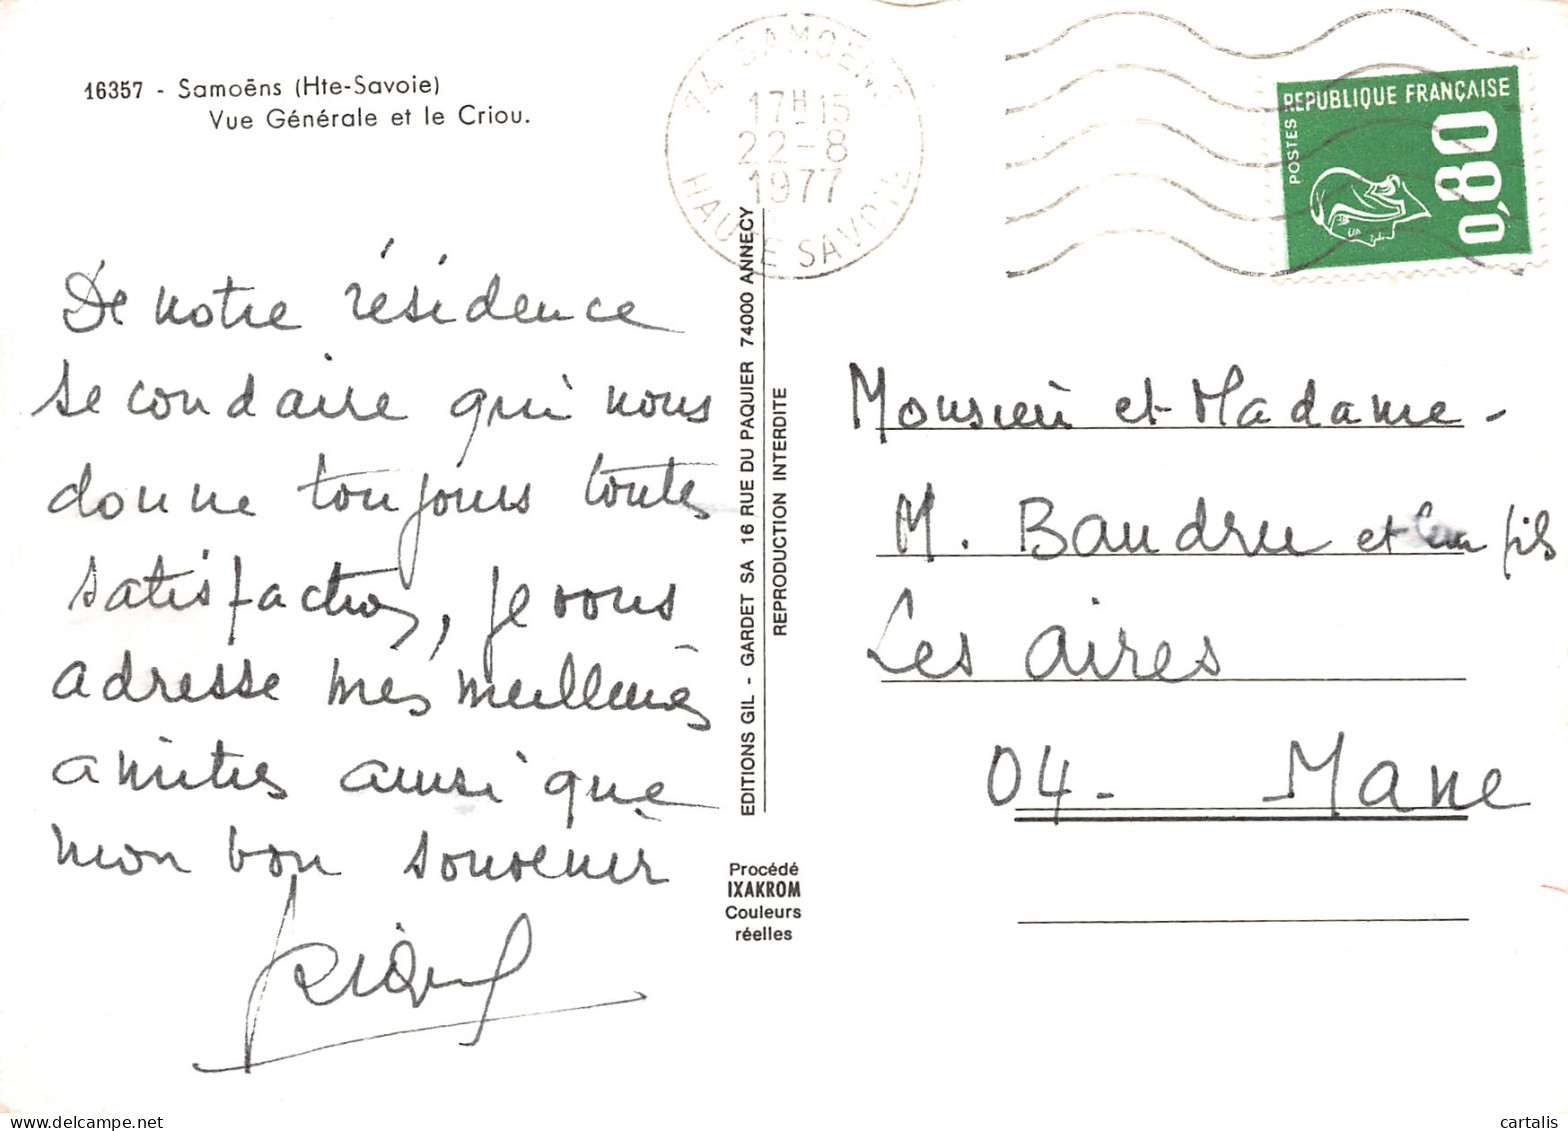 16357 - Samoëns (Hte-Savoie)
Vue Générale et le Criou.
74 SAMOENS
17H15
22-8
1977
HAUTE SAVOIE
REPUBLIQUE FRANÇAISE
POSTES
0,80
De notre résidence
secondaire qui nous
donne toujours toutes
satisfaction, je vous
adresse mes meilleures
amitiés ainsi que
mon bon souvenir
EDITIONS GIL - GARDET SA 16 RUE DU PAQUIER 74000 ANNECY
REPRODUCTION INTERDITE
Procédé
IXAKROM
Couleurs
réelles
Monsieur et Madame -
M. Baudru et leur fils
Les aires
04 - Mane
cartalis
www.delcampe.net